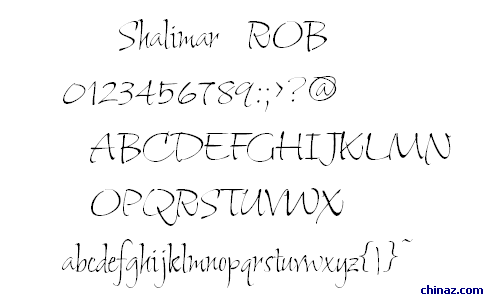 Shalimar ROB
0123456789:;>?@
ABCDEFGHIJKLMN
OPQRSTUVWX
abcdefghijklmnopqrstuvwxyz{|}~
chinaz.com